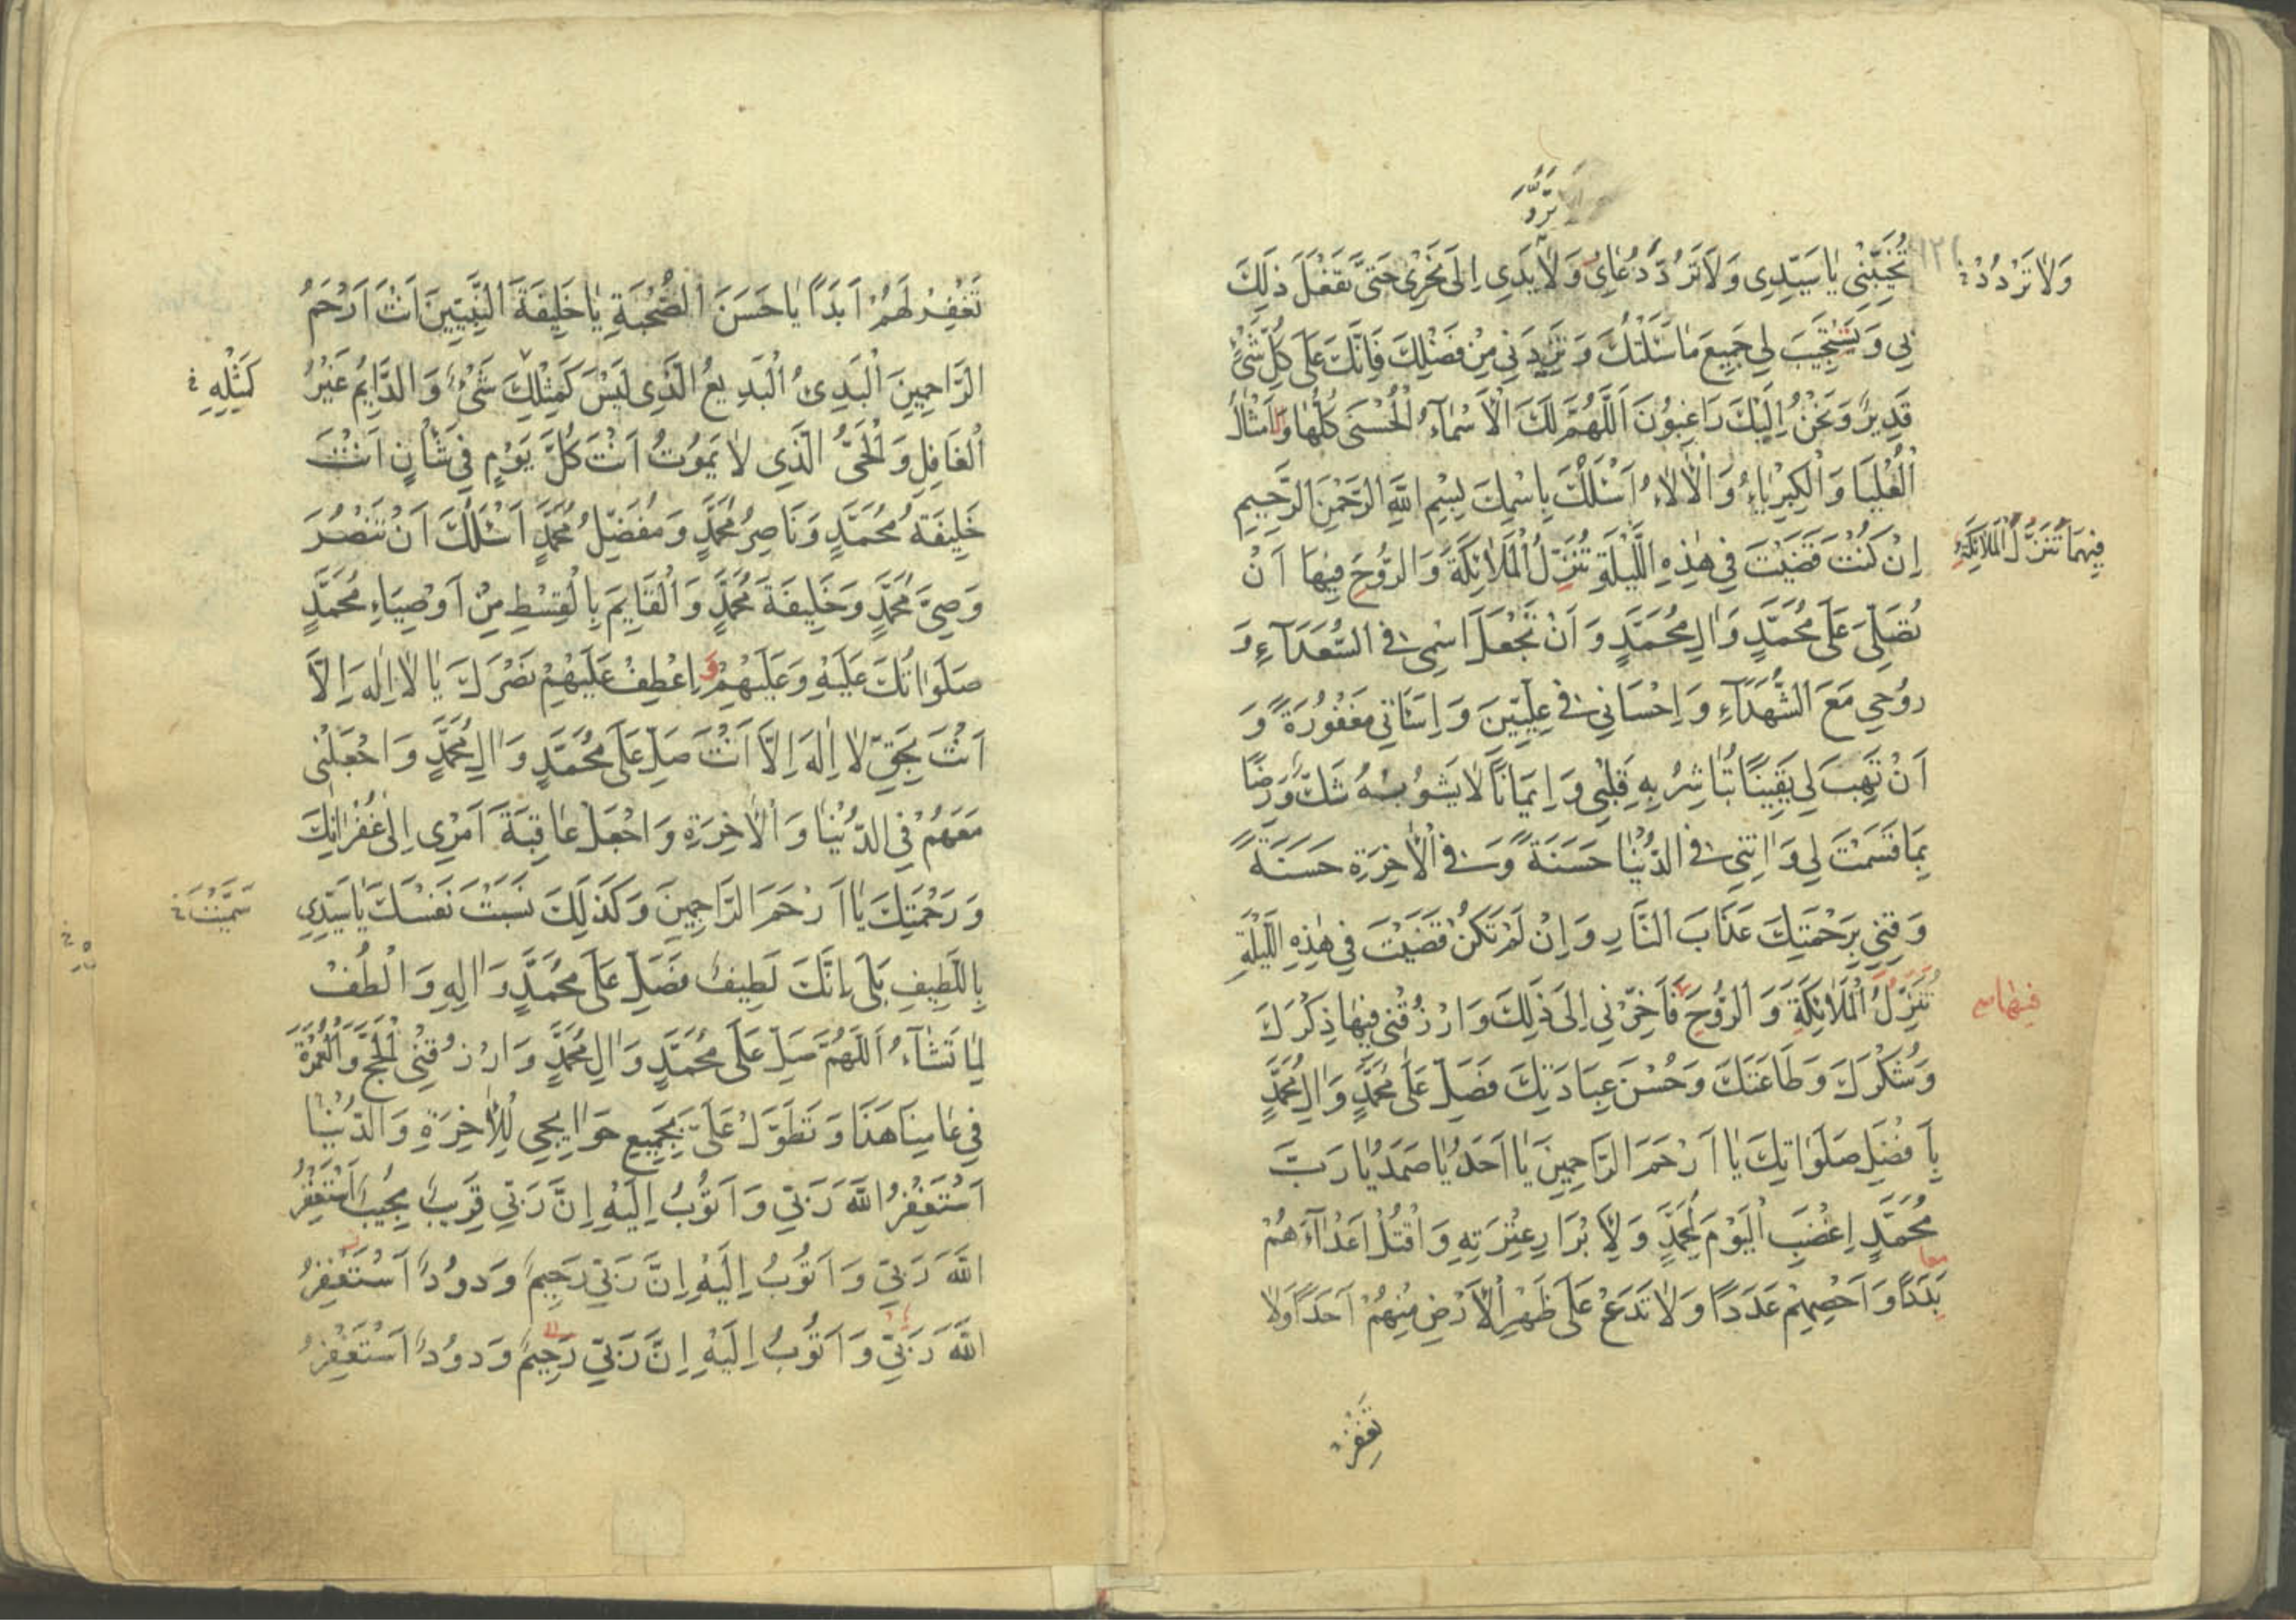 تُخَيِّبْنِي يَا سَيِّدِي وَلَا تَرُدَّ دُعَائِي وَلَا يَدِي إِلَى نَحْرِي حَتَّى تَفْعَلَ ذٰلِكَ
وَلَا تَرْدُدْ
بِي وَتَسْتَجِيبَ لِي جَمِيعَ مَا سَئَلْتُكَ وَتَزِيدَنِي مِنْ فَضْلِكَ فَاِنَّكَ عَلَى كُلِّ شَيْءٍ
قَدِيرٌ وَنَحْنُ اِلَيْكَ رَاغِبُونَ اَللّٰهُمَّ لَكَ الْاَسْمَاءُ الْحُسْنَى كُلُّهَا وَالْاَمْثَالُ
الْعُلْيَا وَالْكِبْرِيَاءُ وَالْاٰلَاءُ اَسْئَلُكَ بِاسْمِكَ بِسْمِ اللّٰهِ الرَّحْمٰنِ الرَّحِيمِ
اِنْ كُنْتَ قَضَيْتَ فِي هٰذِهِ اللَّيْلَةِ تُنَزِّلُ الْمَلَائِكَةَ وَالرُّوحَ فِيهَا اَنْ
فِيهَا تَنَزُّلَ الْمَلَائِكَةِ
تُصَلِّيَ عَلَى مُحَمَّدٍ وَاٰلِ مُحَمَّدٍ وَاَنْ تَجْعَلَ اسْمِي فِي السُّعَدَاءِ وَ
رُوحِي مَعَ الشُّهَدَاءِ وَاِحْسَانِي فِي عِلِّيِّينَ وَاِسَائَتِي مَغْفُورَةً وَ
اَنْ تَهَبَ لِي يَقِينًا تُبَاشِرُ بِهِ قَلْبِي وَاِيمَانًا لَا يَشُوبُهُ شَكٌّ وَرِضًا
بِمَا قَسَمْتَ لِي وَاٰتِنِي فِي الدُّنْيَا حَسَنَةً وَفِي الْاٰخِرَةِ حَسَنَةً
وَقِنِي بِرَحْمَتِكَ عَذَابَ النَّارِ وَاِنْ لَمْ تَكُنْ قَضَيْتَ فِي هٰذِهِ اللَّيْلَةِ
تُنَزِّلُ الْمَلَائِكَةَ وَالرُّوحَ فَاَخِّرْنِي اِلَى ذٰلِكَ وَارْزُقْنِي فِيهَا ذِكْرَكَ
فِيهَا
وَشُكْرَكَ وَطَاعَتَكَ وَحُسْنَ عِبَادَتِكَ فَصَلِّ عَلَى مُحَمَّدٍ وَاٰلِ مُحَمَّدٍ
بِاَفْضَلِ صَلَوَاتِكَ يَا اَرْحَمَ الرَّاحِمِينَ يَا اَحَدُ يَا صَمَدُ يَا رَبَّ
مُحَمَّدٍ اِغْضَبِ الْيَوْمَ لِمُحَمَّدٍ وَلِاَبْرَارِ عِتْرَتِهِ وَاقْتُلْ اَعْدَاءَهُمْ
بَدَدًا وَاَحْصِهِمْ عَدَدًا وَلَا تَدَعْ عَلَى ظَهْرِ الْاَرْضِ مِنْهُمْ اَحَدًا وَلَا
تَغْفِرْ
تَغْفِرْ لَهُمْ اَبَدًا يَا حَسَنَ الصُّحْبَةِ يَا خَلِيفَةَ النَّبِيِّينَ اَنْتَ اَرْحَمُ
الرَّاحِمِينَ الْبَدِيءُ الْبَدِيعُ الَّذِي لَيْسَ كَمِثْلِكَ شَيْءٌ وَالدَّايِمُ غَيْرُ
كَمِثْلِهِ
الْغَافِلِ وَالْحَيُّ الَّذِي لَا يَمُوتُ اَنْتَ كُلَّ يَوْمٍ فِي شَأْنٍ اَنْتَ
خَلِيفَةُ مُحَمَّدٍ وَنَاصِرُ مُحَمَّدٍ وَمُفَضِّلُ مُحَمَّدٍ اَسْئَلُكَ اَنْ تَنْصُرَ
وَصِيَّ مُحَمَّدٍ وَخَلِيفَةَ مُحَمَّدٍ وَالْقَايِمَ بِالْقِسْطِ مِنْ اَوْصِيَاءِ مُحَمَّدٍ
صَلَوَاتُكَ عَلَيْهِ وَعَلَيْهِمْ وَ اِعْطِفْ عَلَيْهِمْ نَصْرَكَ يَا لَا اِلٰهَ اِلَّا
اَنْتَ بِحَقِّ لَا اِلٰهَ اِلَّا اَنْتَ صَلِّ عَلَى مُحَمَّدٍ وَاٰلِ مُحَمَّدٍ وَاجْعَلْنِي
مَعَهُمْ فِي الدُّنْيَا وَالْاٰخِرَةِ وَاجْعَلْ عَاقِبَةَ اَمْرِي اِلَى غُفْرَانِكَ
وَرَحْمَتِكَ يَا اَرْحَمَ الرَّاحِمِينَ وَكَذٰلِكَ نَسَبْتَ نَفْسَكَ يَا سَيِّدِي
سَمَّيْتَ
بِاللَّطِيفِ بَلَى اِنَّكَ لَطِيفٌ فَصَلِّ عَلَى مُحَمَّدٍ وَاٰلِهِ وَالْطُفْ
لِمَا تَشَاءُ اَللّٰهُمَّ صَلِّ عَلَى مُحَمَّدٍ وَاٰلِ مُحَمَّدٍ وَارْزُقْنِي الْحَجَّ وَالْعُمْرَةَ
فِي عَامِنَا هَذَا وَتَطَوَّلْ عَلَيَّ بِجَمِيعِ حَوَايِجِي لِلْاٰخِرَةِ وَالدُّنْيَا
اَسْتَغْفِرُ اللّٰهَ رَبِّي وَاَتُوبُ اِلَيْهِ اِنَّ رَبِّي قَرِيبٌ مُجِيبٌ اَسْتَغْفِرُ
اللّٰهَ رَبِّي وَاَتُوبُ اِلَيْهِ اِنَّ رَبِّي رَحِيمٌ وَدُودٌ اَسْتَغْفِرُ
اللّٰهَ رَبِّي وَاَتُوبُ اِلَيْهِ اِنَّ رَبِّي رَحِيمٌ وَدُودٌ اَسْتَغْفِرُ